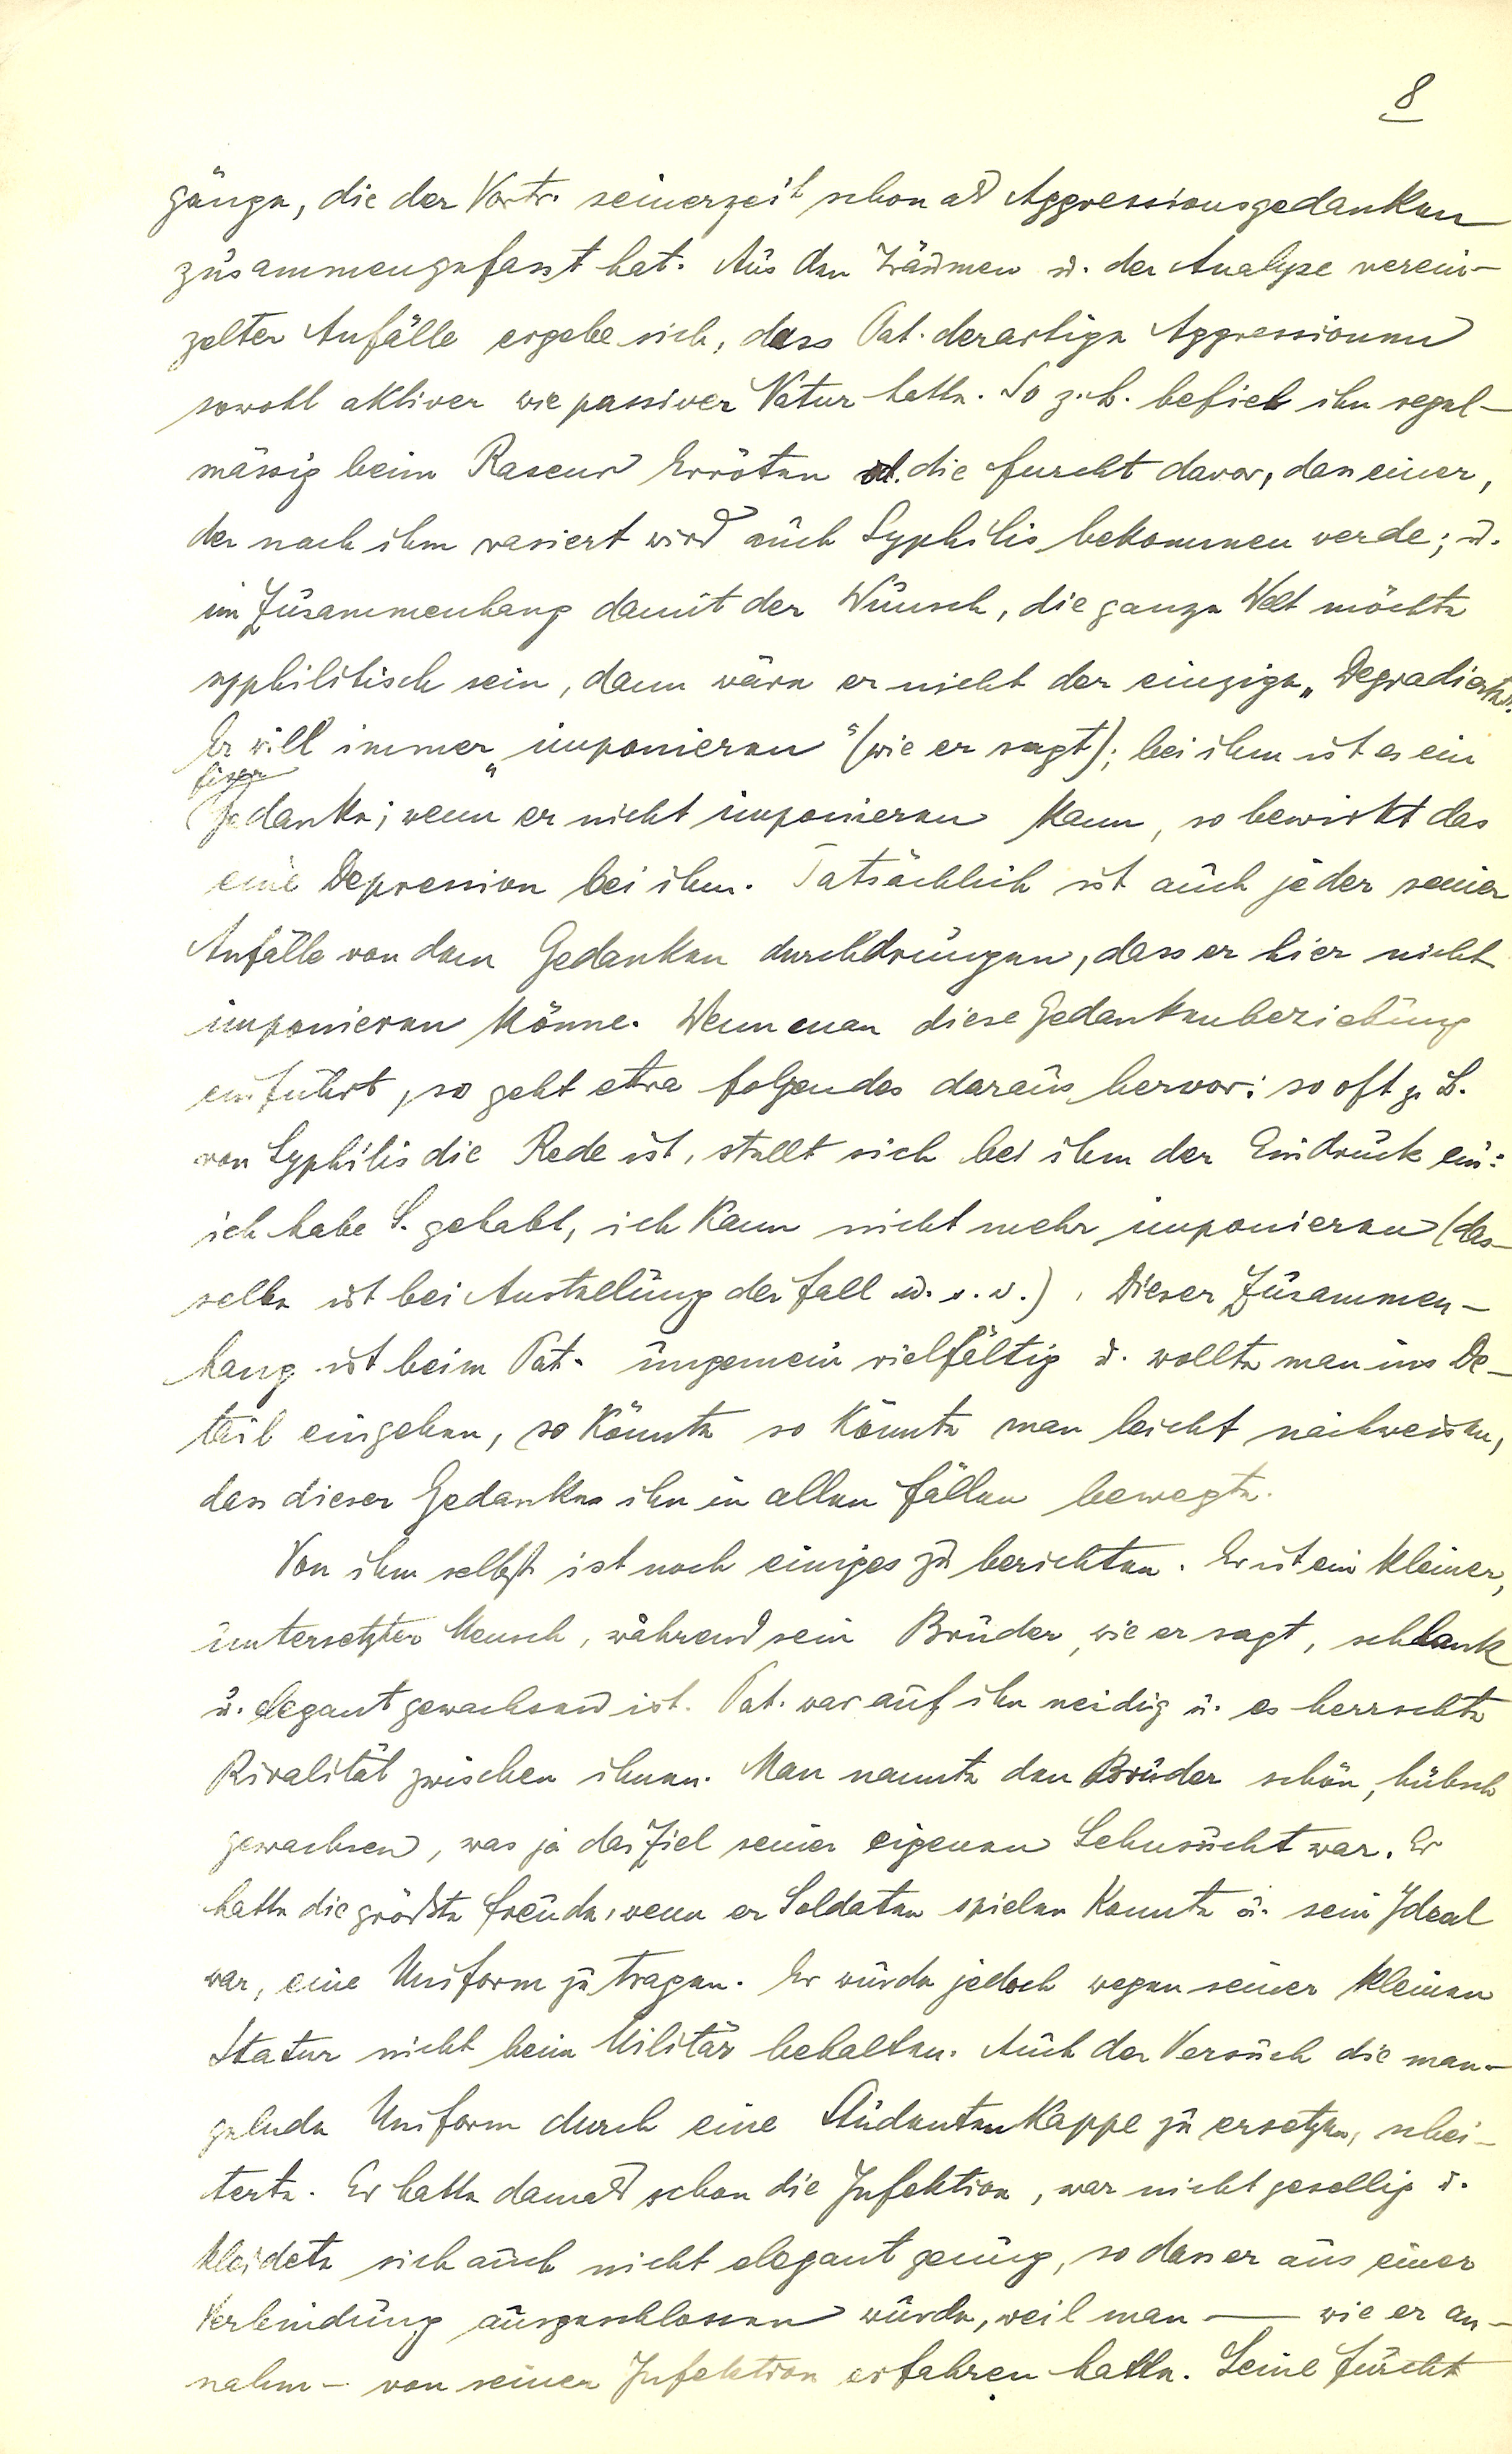 8
gänge, die der Vortr. seinerzeit schon als Aggressionsgedanken
zusammengefasst hat. Aus den Träumen u. der Analyse verein-
zelter Anfälle ergebe sich, dass Pat. derartige Aggressionen
sowohl aktiver wie passiver Natur hatte. So z.B. befiel ihn regel-
mässig beim Raseur Erröten od. die Furcht davor, dass einer,
der nach ihm rasiert wird auch Syphilis bekommen werde; u.
im Zusammenhang damit der Wunsch, die ganze Welt möchte
syphilitisch sein, dann wäre er nicht der einzige „Degradierte".
Er will immer „imponieren" (wie er sagt); bei ihm ist es ein
fixer
Gedanke; wenn er nicht imponieren kann, so bewirkt das
eine Depression bei ihm. Tatsächlich ist auch jeder seiner
Anfälle von dem Gedanken durchdrungen, dass er hier nicht
imponieren könne. Wenn man diese Gedankenbeziehung
einführt, so geht etwa folgendes daraus hervor: so oft z.B.
von Syphilis die Rede ist, stellt sich bei ihm der Eindruck ein:
ich habe S. gehabt, ich kann nicht mehr imponieren (das-
selbe ist bei Anstellung der Fall u. s. w.). Dieser Zusammen-
hang ist beim Pat. ungemein vielfältig u. wollte man ins De-
tail eingehen, so könnte so könnte man leicht nachweisen,
dass dieser Gedanke ihn in allen Fällen bewegte.
Von ihm selbst ist noch einiges zu berichten. Er ist ein kleiner,
untersetzter Mensch, während sein Bruder, wie er sagt, schlank
u. elegant gewachsen ist. Pat. war auf ihn neidig u. es herrschte
Rivalität zwischen ihnen. Man nannte den Bruder schön, hübsch
gewachsen, was ja das Ziel seiner eigenen Sehnsucht war. Er
hatte die größte Freude, wenn er Soldaten spielen konnte u. sein Ideal
war, eine Uniform zu tragen. Er wurde jedoch wegen seiner kleinen
Statur nicht beim Militär behalten. Auch der Versuch die man-
gelnde Uniform durch eine Studentenkappe zu ersetzen, schei-
terte. Er hatte damals schon die Infektion, war nicht gesellig u.
kleidete sich auch nicht elegant genug, so dass er aus einer
Verbindung ausgeschlossen wurde, weil man — wie er an-
nahm — von seiner Infektion erfahren hatte. Seine Furcht